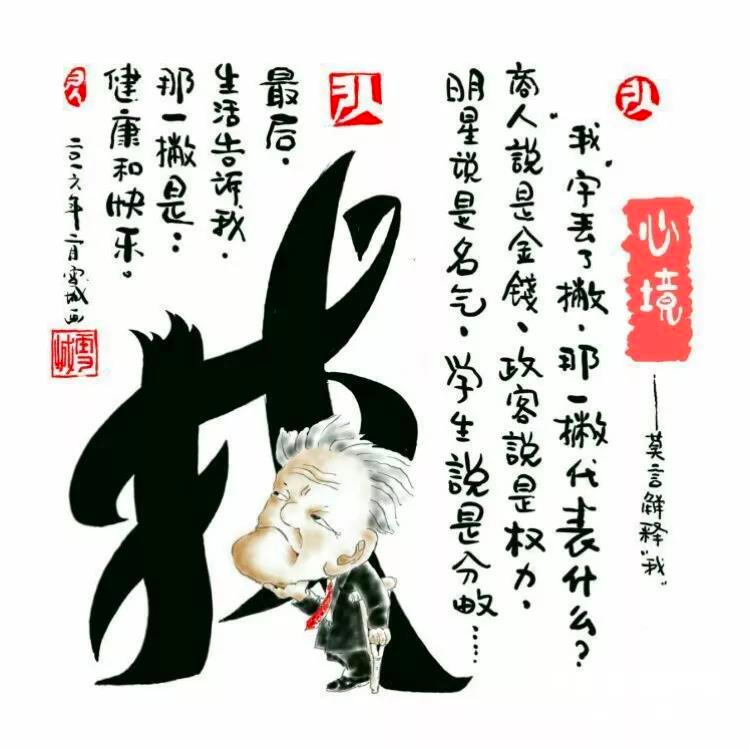 心境
——莫言解释“我”
“我”字丢了撇,那一撇代表什么?
商人說是金錢,政客說是权力,
明星说是名气,学生說是分数……
找
最后,
生活告诉我,
那一撇是:
健康和快乐。
二〇一六年二月雪城画
雪城